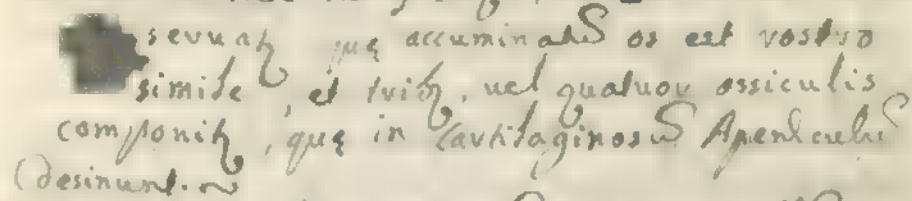 seruatʒ que accuminatũ os est rostro
simile, et tribʒ, uel quatuor ossiculis
componitʒ, que in Cartilaginosũ Apendculũ
desinunt.